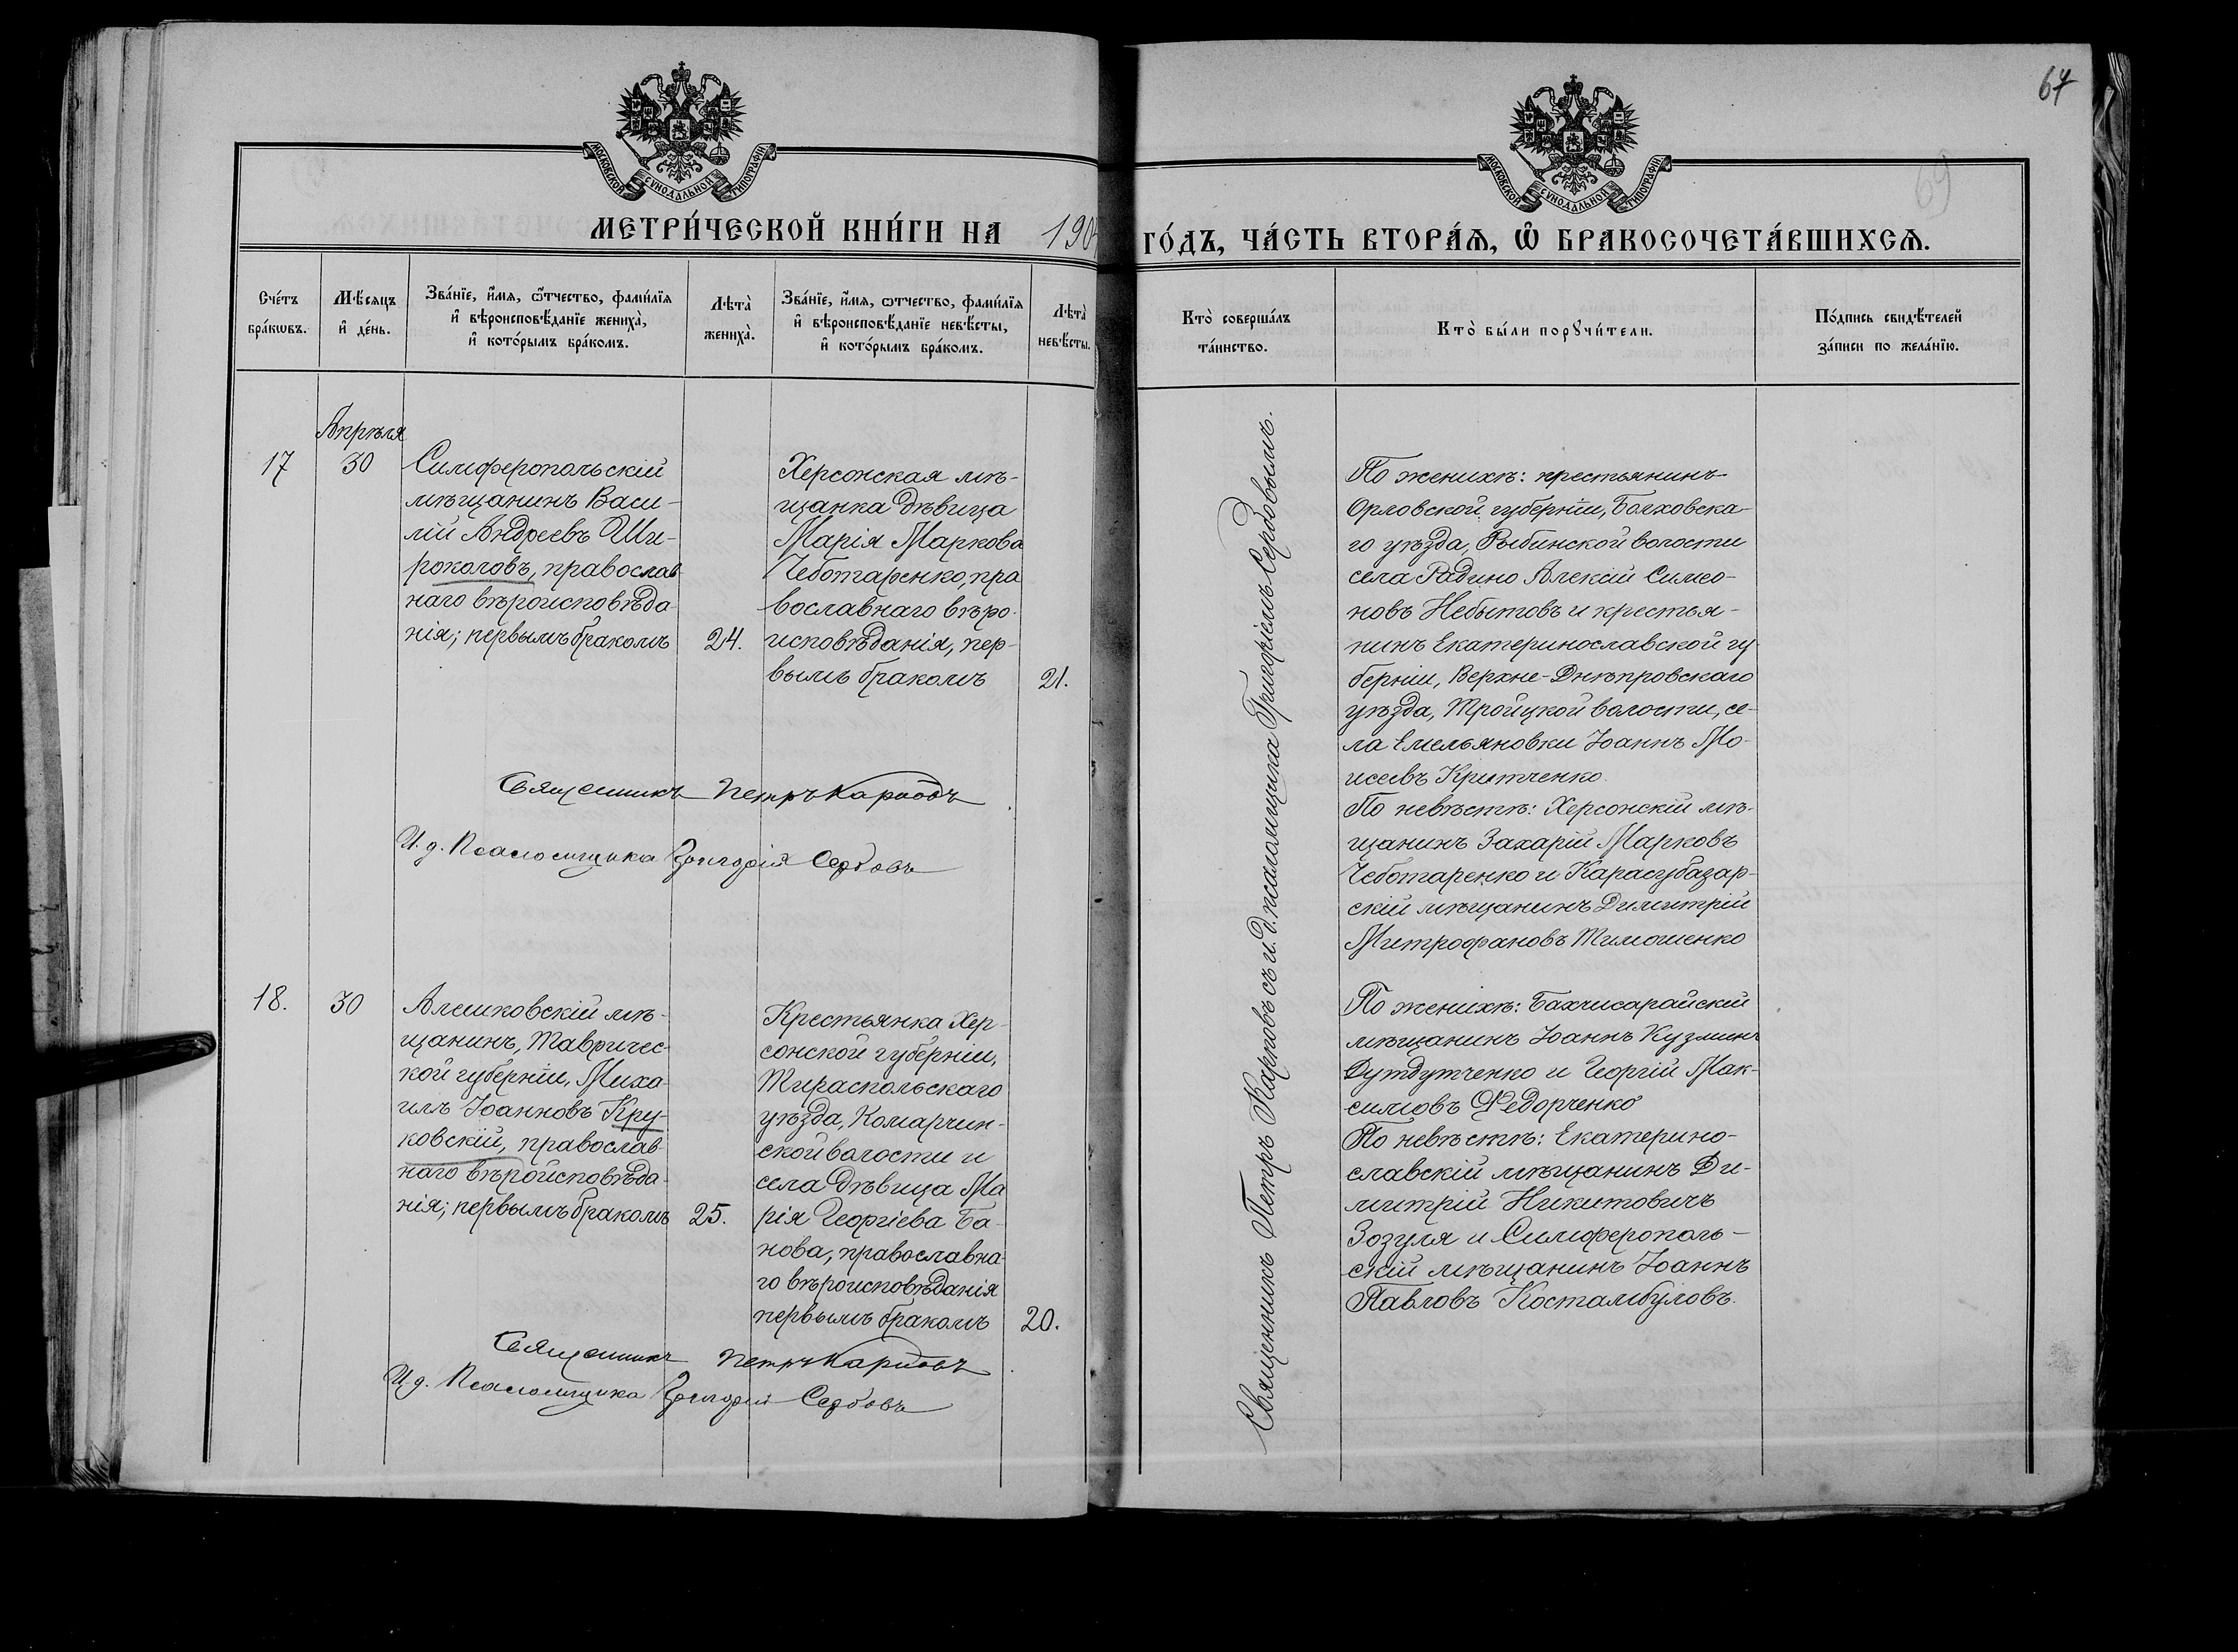 64
69
МОСКОВСКОЙ СУНОДАЛЬНОЙ ТИПОГРАФІИ
МОСКОВСКОЙ СУНОДАЛЬНОЙ ТИПОГРАФІИ
МЕТРИ́ЧЕСКОЙ КНИ́ГИ НА 190
ГО́ДЪ, ЧА́СТЬ ВТОРА́Ѧ, Ѽ БРАКОСОЧЕТА́ВШИХСѦ.
Сче́тъ
бра́кѡвъ.
Мѣ́сяцъ
и҆ де́нь.
Зва́нїе, и҆́мѧ, ѻ҆́тчество, фамѝлїѧ
и҆ вѣроисповѣ́данїе жениха̀,
и҆ кото́рымъ бра́комъ.
Лѣта̀
жениха̀.
Зва́нїе, и҆́мѧ, ѻ҆тчество, фами́лїѧ
и҆ вѣроисповѣ́данїе невѣ́сты,
и҆ кото́рымъ бра́комъ.
Лѣта̀
невѣ́сты.
Кто̀ соверша́лъ
та́инство.
Кто̀ бы́ли порꙋчи́тели.
По́дпись свидѣ́телей
за́писи по жела́нїю.
Апрѣля
17
30
Симферопольскій
мѣщанинъ Васи-
лій Андреевъ Ши-
роколовъ, православ-
наго вѣроисповѣда-
нія; первымъ бракомъ
24.
Херсонская мѣ-
щанка дѣвица
Марія Маркова
Чеботаренко, пра
вославнаго вѣро-
исповѣданія, пер-
вымъ бракомъ
21.
Священникъ Петръ Карповъ
И. д. Псаломщика Григорій Сербовъ
Священникъ Петръ Карповъ съ и. д. псаломщика Григоріемъ Сербовымъ.
По женихѣ: крестьянинъ
Орловской губерніи, Болховска-
го уѣзда, Рыбинской волости
села Радино Алексій Симео-
новъ Небытовъ и крестья-
нинъ Екатеринославской гу-
берніи, Верхне-Днѣпровскаго
уѣзда, Тройцкой волости, се-
ла Емельяновки Іоаннъ Мо-
исеевъ Критченко.
По невѣстѣ: Херсонскій мѣ-
щанинъ Захарій Марковъ
Чеботаренко и Карасубазар-
скій мѣщанинъ Димитрій
Митрофановъ Тимошенко
18.
30
Алешковскій мѣ-
щанинъ, Тавричес-
кой губерніи, Миха-
илъ Іоанновъ Кру-
ковскій, православ-
наго вѣроисповѣда-
нія; первымъ бракомъ
25.
Крестьянка Хер-
сонской губерніи,
Тираспольскаго
уѣзда, Комарчин-
ской волости и
села дѣвица Ма
рія Георгіева Ба-
нова, православна-
го вѣроисповѣданія
первымъ бракомъ
20.
Священникъ Петръ Карповъ
И. д. Псаломщика Григорій Сербовъ
По женихѣ: Бахчисарайскій
мѣщанинъ Іоаннъ Кузминъ
Дутдутченко и Георгій Мак-
симовъ Федорченко
По невѣстѣ: Екатерино-
славскій мѣщанинъ Ди-
митрій Никитовичъ
Зозуля и Симферополь-
скій мѣщанинъ Іоаннъ
Павловъ Костамбуловъ.